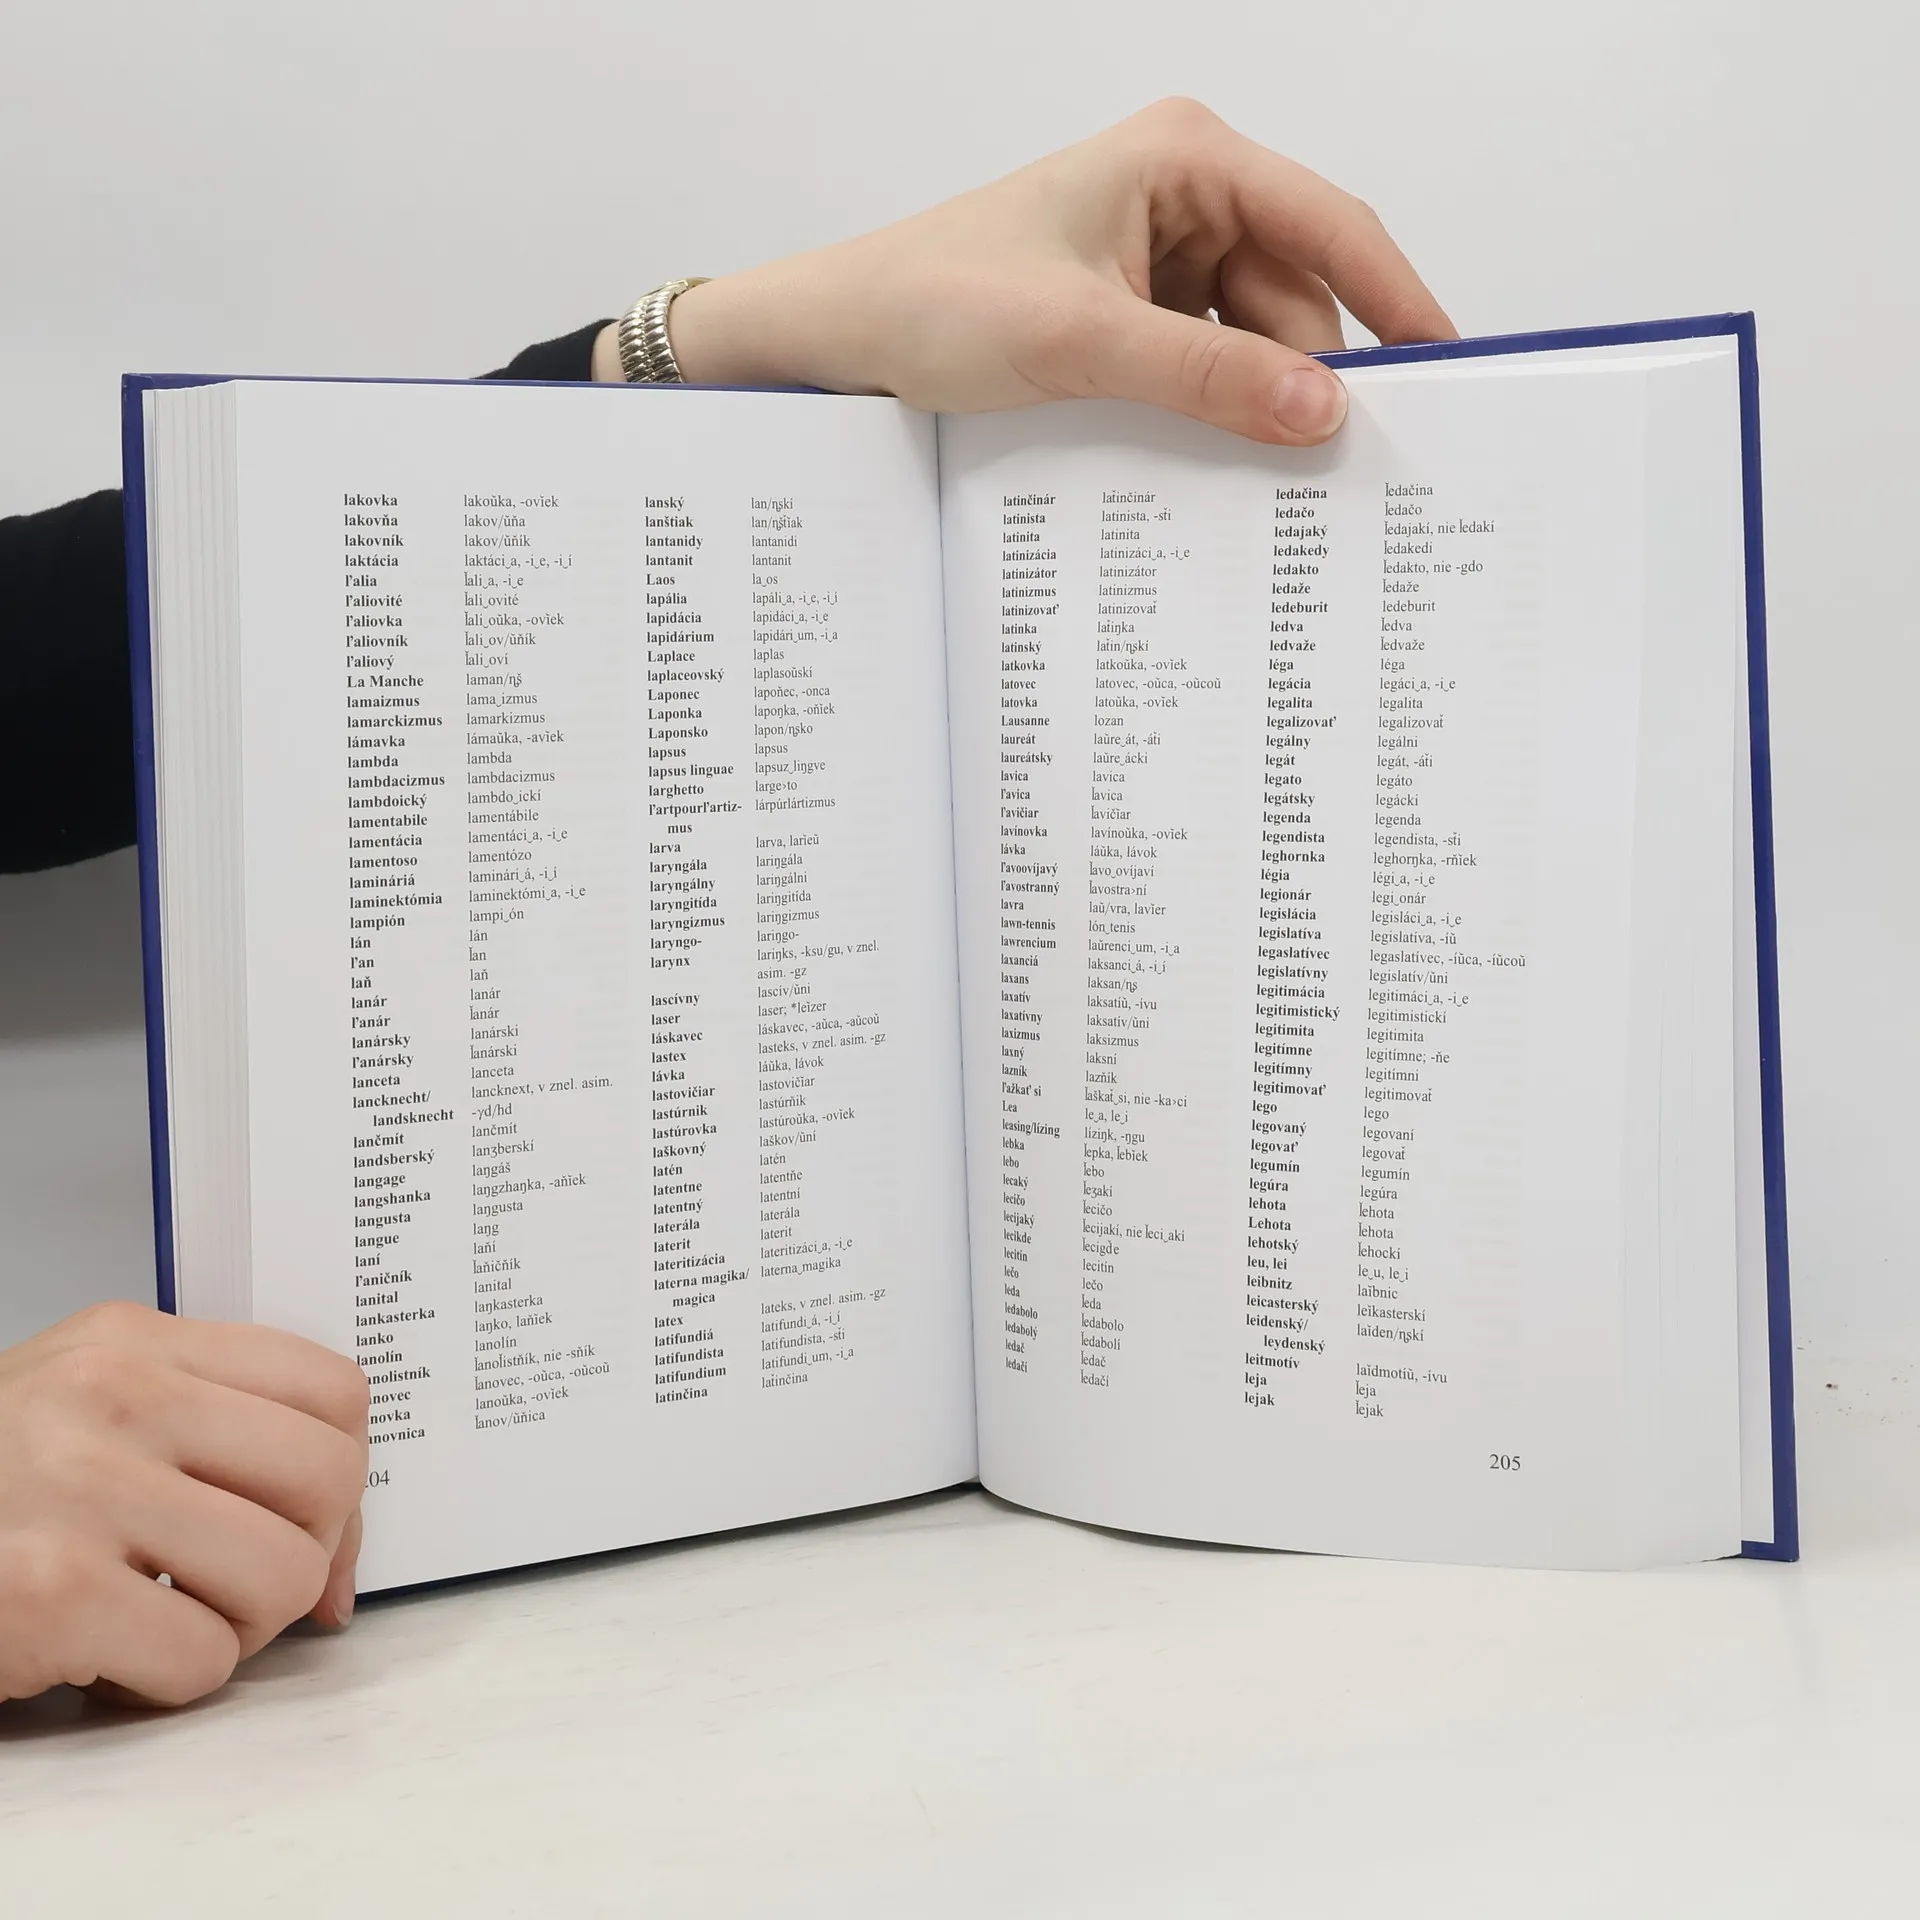 lakovka lakoŭka, -ovĭek
lakovňa lakov/ŭňa
lakovník lakov/ŭňík
laktácia laktáci‿a, -i‿e, -i‿í
ľalia ľali‿a, -i‿e
ľaliovité ľali‿ovité
ľaliovka ľali‿oŭka, -ovĭek
ľaliovník ľali‿ov/ŭňík
ľaliový ľali‿oví
La Manche laman/ŋš
lamaizmus lama‿izmus
lamarckizmus lamarkizmus
lámavka lámaŭka, -avĭek
lambda lambda
lambdacizmus lambdacizmus
lambdoický lambdo‿ickí
lamentabile lamentábile
lamentácia lamentáci‿a, -i‿e
lamentoso lamentózo
lamináriá laminári‿á, -i‿í
laminektómia laminektómi‿a, -i‿e
lampión lampi‿ón
lán lán
ľan ľan
laň laň
lanár lanár
ľanár ľanár
lanársky lanárski
ľanársky ľanárski
lanceta lanceta
lancknecht/ lancknext, v znel. asim.
landsknecht -γd/hd
lančmít lančmít
landsberský lanʒberskí
langage laŋgáš
langshanka laŋgzhaŋka, -aňĭek
langusta laŋgusta
langue laŋg
laní laňí
ľaničník ľaňičňík
lanital lanital
lankasterka laŋkasterka
lanko laŋko, laňĭek
lanolín lanolín
anolistník ľanoľistňík, nie -sňík
anovec ľanovec, -oŭca, -oŭcoŭ
novka ľanoŭka, -ovĭek
anovnica ľanov/ŭňica
04
lanský lan/ŋskí
lanštiak lan/ŋšťĭak
lantanidy lantanidi
lantanit lantanit
Laos la‿os
lapália lapáli‿a, -i‿e, -i‿í
lapidácia lapidáci‿a, -i‿e
lapidárium lapidári‿um, -i‿a
Laplace laplas
laplaceovský laplasoŭskí
Laponec lapoňec, -onca
Laponka lapoŋka, -oňĭek
Laponsko lapon/ŋsko
lapsus lapsus
lapsus linguae lapsuz‿liŋgve
larghetto large›to
ľartpourľartiz- lárpúrlártizmus
mus
larva larva, larĭeŭ
laryngála lariŋgála
laryngálny lariŋgálni
laryngitída lariŋgitída
laryngizmus lariŋgizmus
laryngo- lariŋgo-
larynx lariŋks, -ksu/gu, v znel.
asim. -gz
lascívny lascív/ŭni
laser laser; *leĭzer
láskavec láskavec, -aŭca, -aŭcoŭ
lastex lasteks, v znel. asim. -gz
lávka láŭka, lávok
lastovičiar lastovičĭar
lastúrnik lastúrňik
lastúrovka lastúroŭka, -ovĭek
laškovný laškov/ŭní
latén latén
latentne latentňe
latentný latentní
laterála laterála
laterit laterit
lateritizácia lateritizáci‿a, -i‿e
laterna magika/ laterna‿magika
magica
latex lateks, v znel. asim. -gz
latifundiá latifundi‿á, -i‿í
latifundista latifundista, -sťi
latifundium latifundi‿um, -i‿a
latinčina laťinčina
latinčinár laťinčinár
latinista latinista, -sťi
latinita latinita
latinizácia latinizáci‿a, -i‿e
latinizátor latinizátor
latinizmus latinizmus
latinizovať latinizovať
latinka laťiŋka
latinský laťin/ŋskí
latkovka latkoŭka, -ovĭek
latovec latovec, -oŭca, -oŭcoŭ
latovka latoŭka, -ovĭek
Lausanne lozan
laureát laŭre‿át, -áťi
laureátsky laŭre‿ácki
lavica lavica
ľavica ľavica
ľavičiar ľavičĭar
lavínovka lavínoŭka, -ovĭek
lávka láŭka, lávok
ľavoovíjavý ľavo‿ovíjaví
ľavostranný ľavostra›ní
lavra laŭ/vra, lavĭer
lawn-tennis lón‿tenis
lawrencium laŭrenci‿um, -i‿a
laxanciá laksanci‿á, -i‿í
laxans laksan/ŋs
laxatív laksatíŭ, -ívu
laxatívny laksatív/ŭni
laxizmus laksizmus
laxný laksní
lazník lazňík
ľažkať si ľaškať‿si, nie -ka›ci
Lea le‿a, le‿i
leasing/lízing líziŋk, -ŋgu
lebka ľepka, ľebĭek
lebo ľebo
lecaký ľeʒakí
lecičo ľecičo
lecijaký ľecijakí, nie ľeci‿akí
lecikde ľecigďe
lecitín lecitín
lečo lečo
leda ľeda
ledabolo ľedabolo
ledabolý ľedabolí
ledač ľedač
ledačí ľedačí
ledačina ľedačina
ledačo ľedačo
ledajaký ľedajakí, nie ľedakí
ledakedy ľedakedi
ledakto ľedakto, nie -gdo
ledaže ľedaže
ledeburit ledeburit
ledva ľedva
ledvaže ľedvaže
léga léga
legácia legáci‿a, -i‿e
legalita legalita
legalizovať legalizovať
legálny legálni
legát legát, -áťi
legato legáto
legátsky legácki
legenda legenda
legendista legendista, -sťi
leghornka leghorŋka, -rňĭek
légia légi‿a, -i‿e
legionár legi‿onár
legislácia legisláci‿a, -i‿e
legislatíva legislatíva, -íŭ
legaslatívec legaslatívec, -íŭca, -íŭcoŭ
legislatívny legislatív/ŭni
legitimácia legitimáci‿a, -i‿e
legitimistický legitimistickí
legitimita legitimita
legitímne legitímne; -ňe
legitímny legitímni
legitimovať legitimovať
lego lego
legovaný legovaní
legovať legovať
legumín legumín
legúra legúra
lehota ľehota
Lehota ľehota
lehotský ľehockí
leu, lei le‿u, le‿i
leibnitz laĭbnic
leicasterský leĭkasterskí
leidenský/ laĭden/ŋskí
leydenský
leitmotív laĭdmotíŭ, -ívu
leja ľeja
lejak ľejak
205